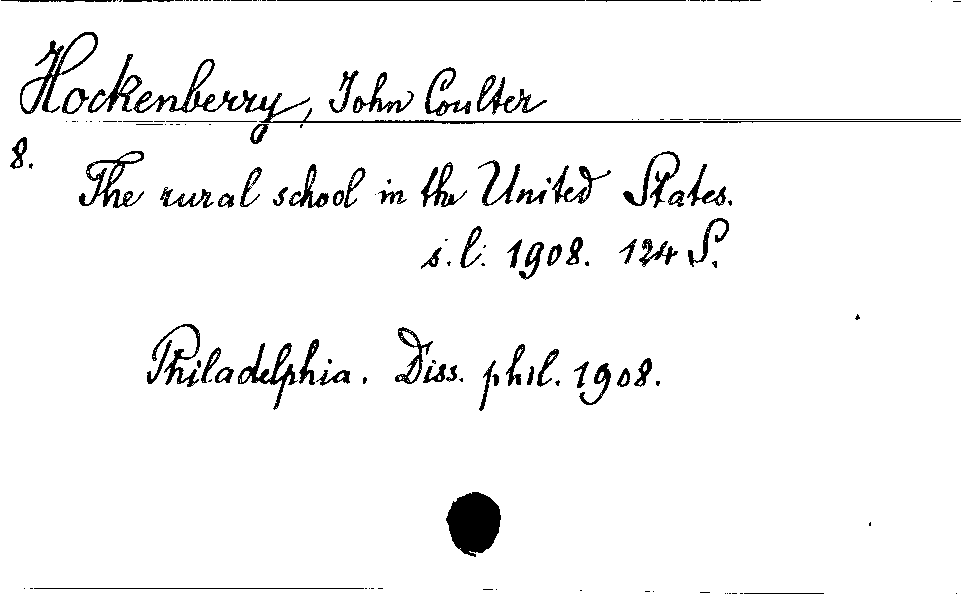 Hockenberry, John Coulter
8.
The rural school in the United States.
s.l. 1908. 124 S.
Philadelphia. Diss. phil. 1908.